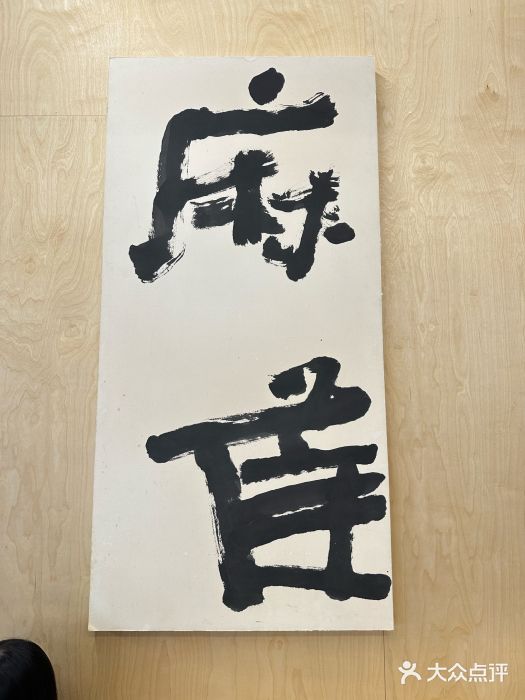 麻
大众点评